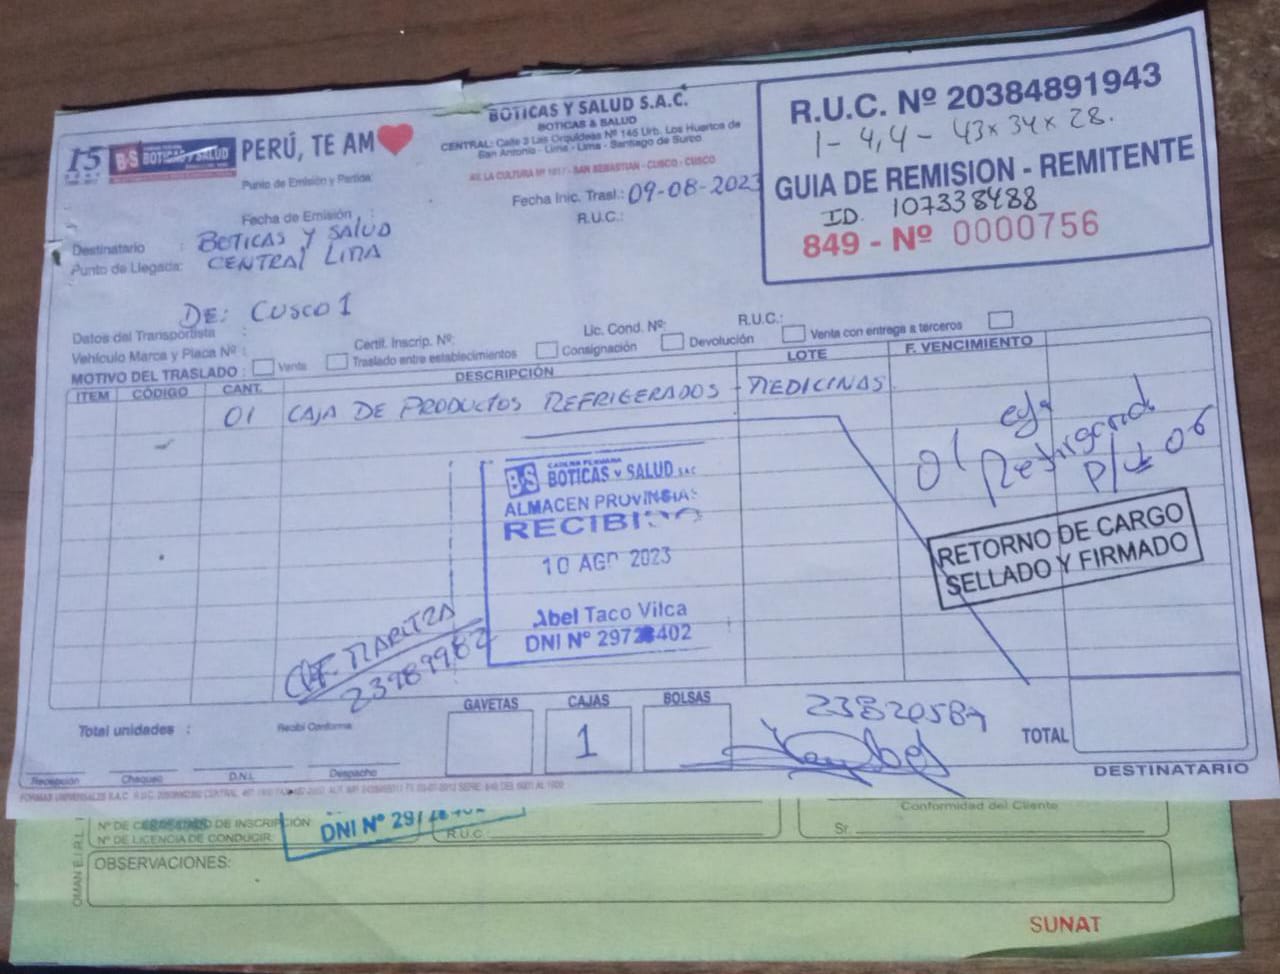 BOTICAS Y SALUD S.A.C.
BOTICAS & SALUD
CENTRAL: Calle 3 Las Orquídeas Nº 145 Urb. Los Huertos de
San Antonio - Lima - Lima - Santiago de Surco
AV. LA CULTURA Nº 1017 - SAN SEBASTIAN - CUSCO - CUSCO
15
B·S BOTICAS Y SALUD
PERÚ, TE AM
R.U.C. Nº 20384891943
1 - 4,4 - 43x34x28.
GUIA DE REMISION - REMITENTE
ID. 107338488
849 - Nº 0000756
Punto de Emisión y Partida:
Fecha Inic. Trasl.: 09-08-2023
Fecha de Emisión :
R.U.C.:
Destinatario : BOTICAS Y SALUD
Punto de Llegada: CENTRAL LIMA
DE: CUSCO 1
Datos del Transportista :
Vehículo Marca y Placa Nº :
Certif. Inscrip. Nº:
Lic. Cond. Nº:
R.U.C.:
MOTIVO DEL TRASLADO : Venta Traslado entre establecimientos Consignación Devolución Venta con entrega a terceros
ITEM CÓDIGO CANT. DESCRIPCIÓN LOTE F. VENCIMIENTO
01 CAJA DE PRODUCTOS REFRIGERADOS - MEDICINAS
01
BS BOTICAS Y SALUD SAC
ALMACEN PROVINCIAS
RECIBIDO
10 AGO 2023
Abel Taco Vilca
RETORNO DE CARGO
SELLADO Y FIRMADO
MARITZA
23989982
23820587
Total unidades :
Recibí Conforme
GAVETAS CAJAS BOLSAS
1
TOTAL
Recepción Chequeo D.N.I. Despacho
DESTINATARIO
Conformidad del Cliente
Nº DE LICENCIA DE CONDUCIR:
R.U.C.
Sr.
OBSERVACIONES:
SUNAT